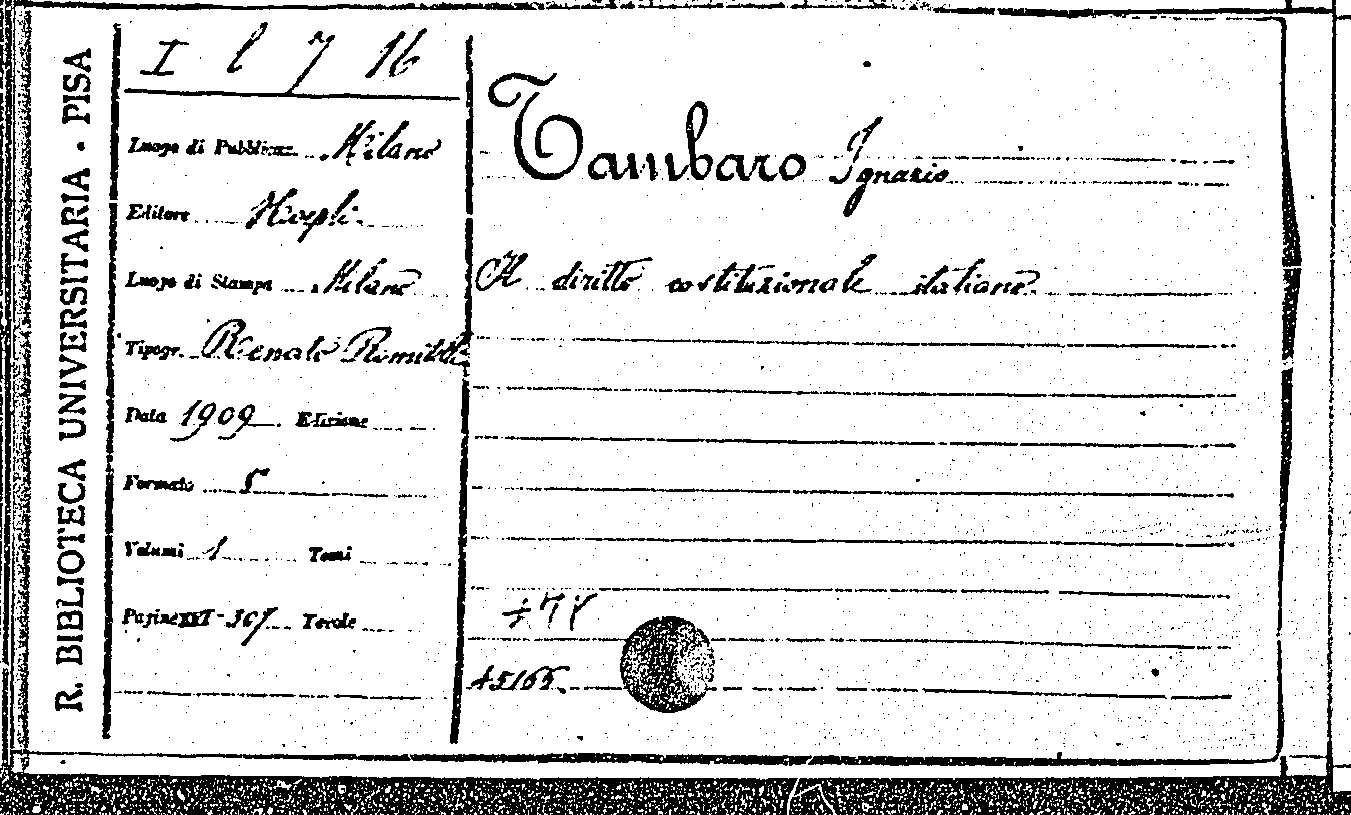 R. BIBLIOTECA UNIVERSITARIA · PISA
I l 7 16
Luogo di Pubblicaz. Milano
Editore Hoepli
Luogo di Stampa Milano
Tipogr. Renato Romitelli
Data 1909 Edizione
Formato 8
Volumi 1 Tomi
Pagine XVI- Tavole
Tambaro Ignazio
Il diritto costituzionale italiano.